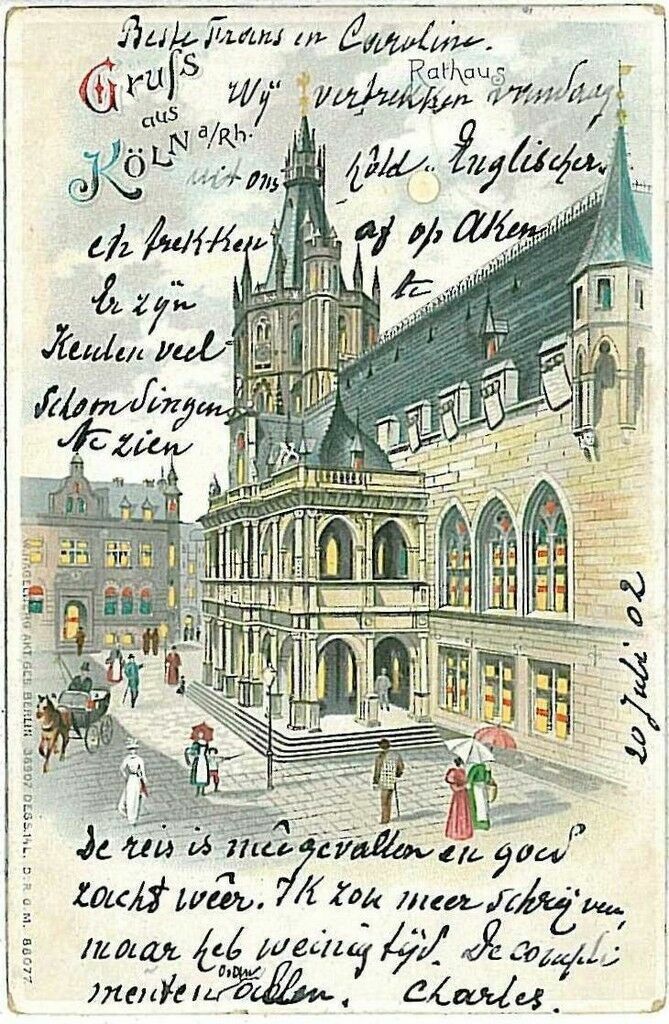 Beste Frans en Caroline.
Gruss
aus
Köln a/Rh.
Rathaus
Wij vertrekken vandaag
uit ons hôtel Englischer
en trekken af op Aken
Er zijn te
Keulen veel
schoon dingen
te zien
20 Juli 02
De reis is mêegevallen en goed
zacht wêer. Ik zou meer schrijven,
maar heb weinig tijd. De compli
menten aan
allen. Charles.
AKT. GES. BERLIN. D.R.G.M. 88077